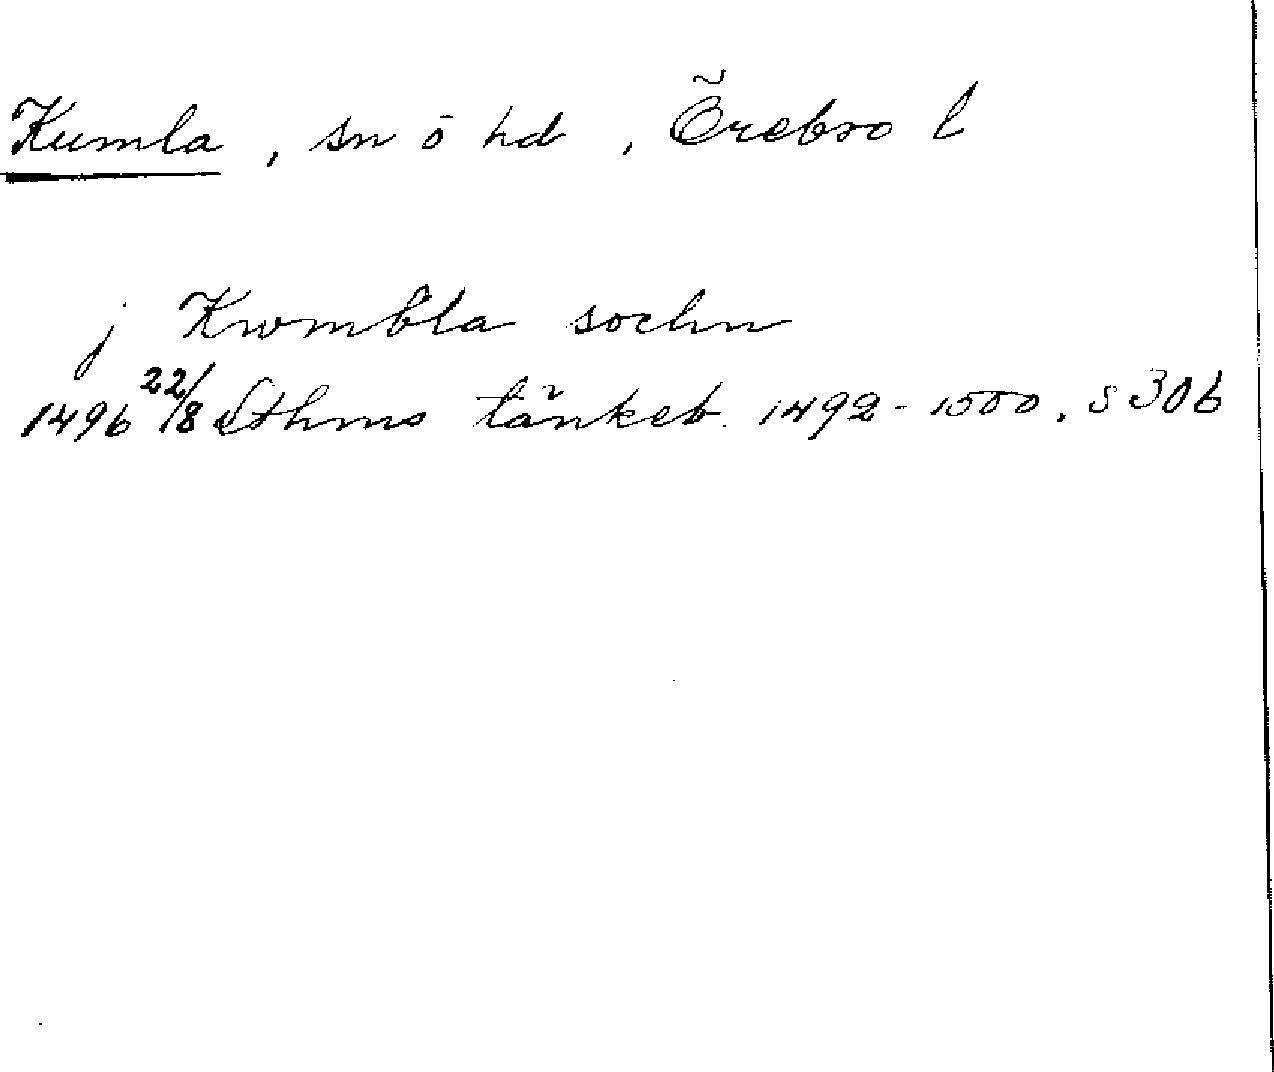 Kumla, sn ō hd, Örebro l
j Kwmbla sochn
1496 22/8 Sthms tänkeb. 1492-1500. s 306